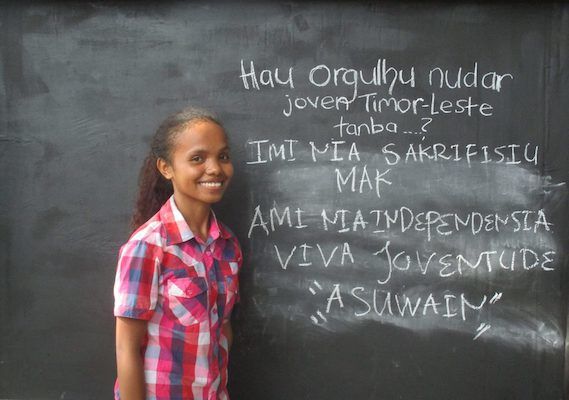 Hau orgulhu nudar
joven Timor-Leste
tanba....?
IMI NIA SAKRIFISIU
MAK
AMI NIA INDEPENDENSIA
VIVA JOVENTUDE
"ASUWAIN"